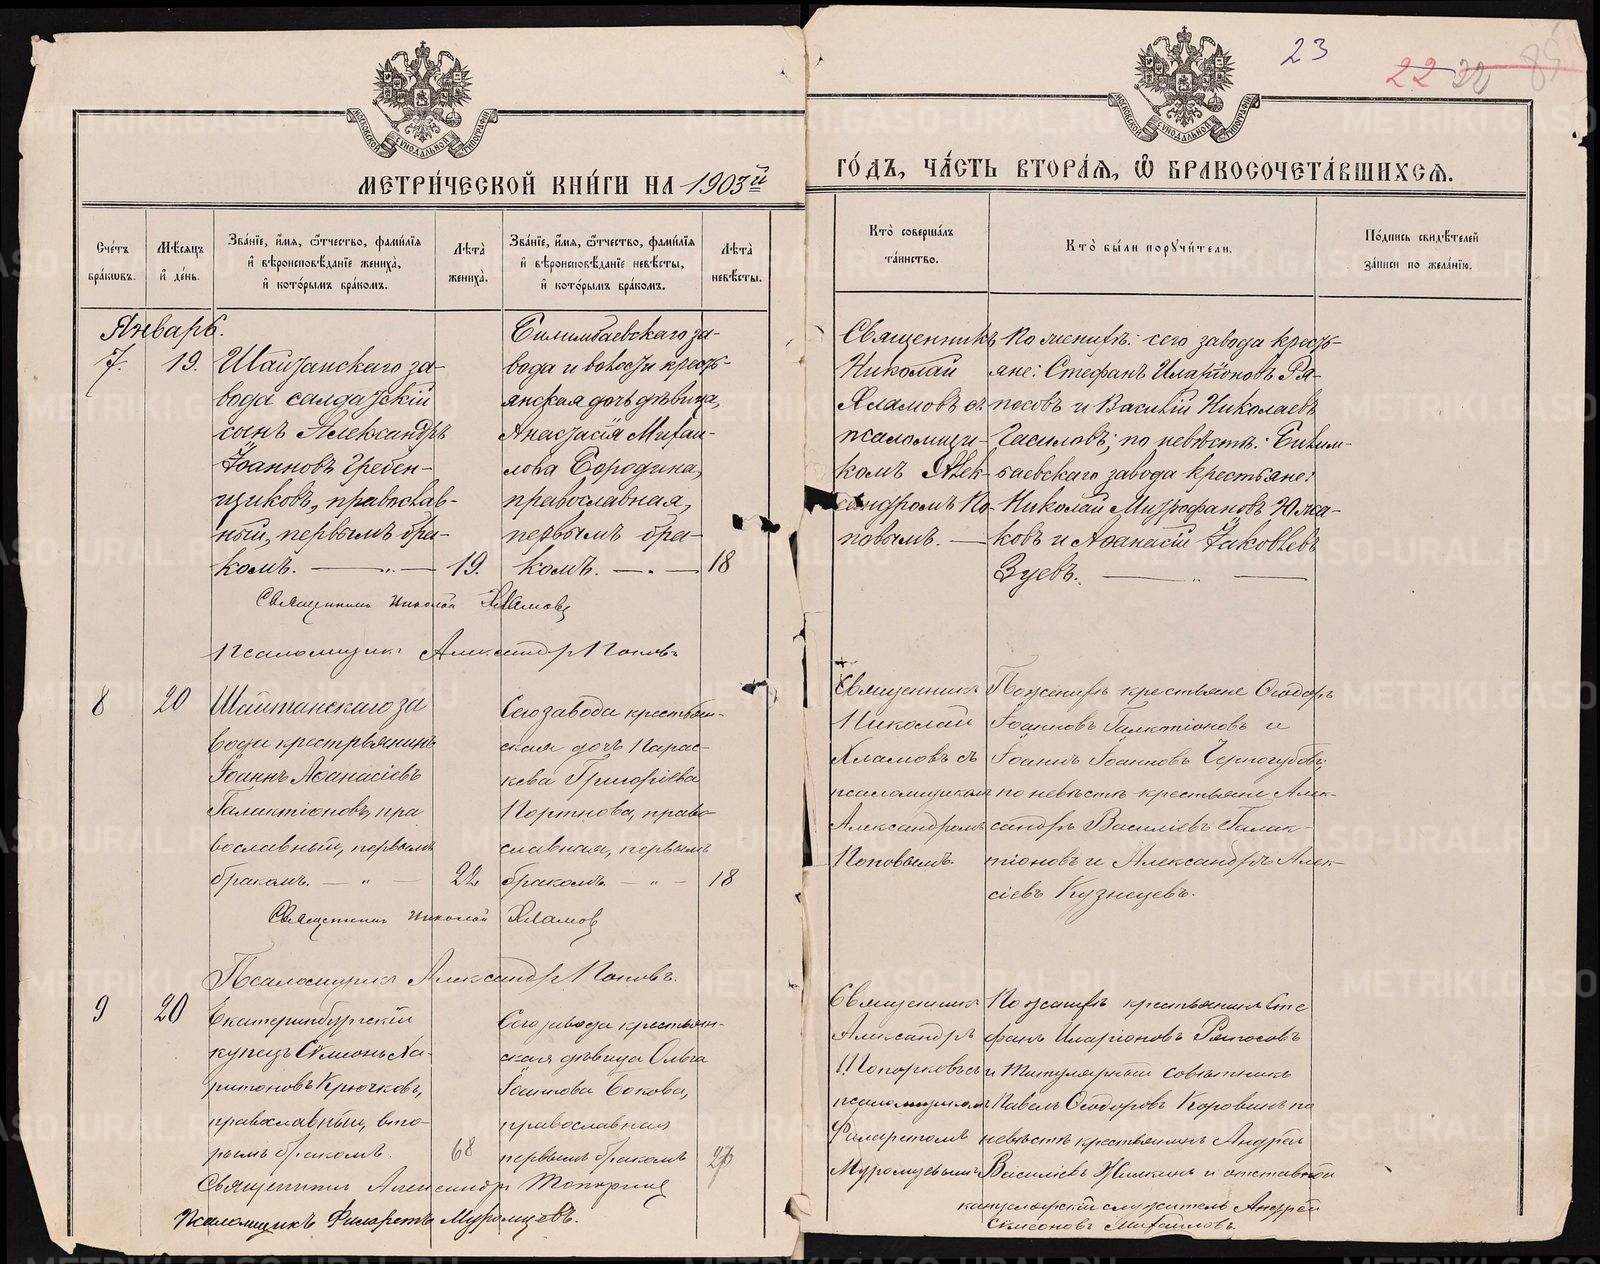 23
22 32 85
МОСКОВСКОЙ СУНОДАЛЬНОЙ ТИПОГРАФІИ
МОСКОВСКОЙ СУНОДАЛЬНОЙ ТИПОГРАФІИ
МЕТРИ́ЧЕСКОЙ КНИ́ГИ НА 1903й
ГО́ДЪ, ЧА́СТЬ ВТОРА́Ѧ, Ѽ БРАКОСОЧЕТА́ВШИХСѦ.
Сче́тъ
бра́кѡвъ.
Мѣ́сѧцъ
и҆ де́нь.
Зва́нїе, и҆́мѧ, ѻ҆́тчество, фами́лїѧ
и҆ вѣроисповѣ́данїе жениха̀,
и҆ кото́рымъ бра́комъ.
Лѣ́та̀
жениха̀.
Зва́нїе, и҆́мѧ, ѻ҆́тчество, фами́лїѧ
и҆ вѣроисповѣ́данїе невѣ́сты,
и҆ кото́рымъ бра́комъ.
Лѣ́та̀
невѣ́сты.
Кто̀ соверша́лъ
та́инство.
Кто̀ бы́ли порꙋчи́тели.
По́дпись свидѣ́телей
за́писи по жела́нїю.
Январь.
7.
19.
Шайтанскаго за-
вода салдатскій
сынъ Александръ
Іоанновъ Гребен-
щиковъ, православ-
ный, первымъ бра-
комъ. — „ —
19.
Билимбаевскаго за-
вода и волости кресть-
янская дочь девица,
Анастасія Михаи-
лова Бородина,
православная,
первымъ бра-
комъ. — „ —
18
Священникъ
Николай
Хламовъ съ
псаломщи-
комъ Алек-
сандромъ По-
повымъ. —
По женихѣ: сего завода кресть-
яне: Стефанъ Иларіоновъ Ря-
посовъ и Василій Николаевъ
Гасиловъ; по невѣстѣ: Билим-
баевскаго завода крестьяне:
Николай Митрофановъ Юма-
ковъ и Аѳанасій Іаковлевъ
Зуевъ. — „ —
Священникъ Николай Хламовъ
Псаломщикъ Александръ Поповъ
8
20
Шайтанскаго за
вода крестьянинъ
Іоаннъ Аѳанасіевъ
Галактіоновъ, пра
вославный, первымъ
бракомъ. — „ —
22
Сего завода крестьян-
ская дочь Парас-
кева Григоріева
Портнова, право
славная, первымъ
бракомъ. — „ —
18
Священникъ
Николай
Хламовъ съ
псаломщикомъ
Александромъ
Поповымъ.
По женихѣ крестьяне Ѳеодоръ
Іоанновъ Галактіоновъ и
Іоаннъ Іоанновъ Черногубовъ;
по невѣстѣ крестьяне Алек-
сандръ Василіевъ Галак-
тіоновъ и Александръ Алек-
сіевъ Кузнецевъ.
Священникъ Николай Хламов
Псаломщикъ Александръ Поповъ.
9
20
Екатеринбургскій
купецъ Симеонъ Ха-
ритоновъ Крючковъ,
православный, вто-
рымъ бракомъ.
68
Сего завода крестьян-
ская девица Ольга
Бокова,
православная
первымъ бракомъ
Священникъ
Александръ
Топорковъ съ
псаломщикомъ
Филаретомъ
Муромцевымъ
По женихѣ крестьянинъ Сте
фанъ Иларіоновъ Ряпосовъ
и Титулярный совѣтникъ
Павелъ Ѳеодоровъ Коровинъ по
невѣстѣ крестьянинъ Андрей
Василіевъ и отставной
канцелярскій служитель Андрей
Симеоновъ Михайловъ.
Священникъ Александръ Топорковъ
Псаломщикъ Филаретъ Муромцевъ.
METRIKI.GASO-URAL.RU